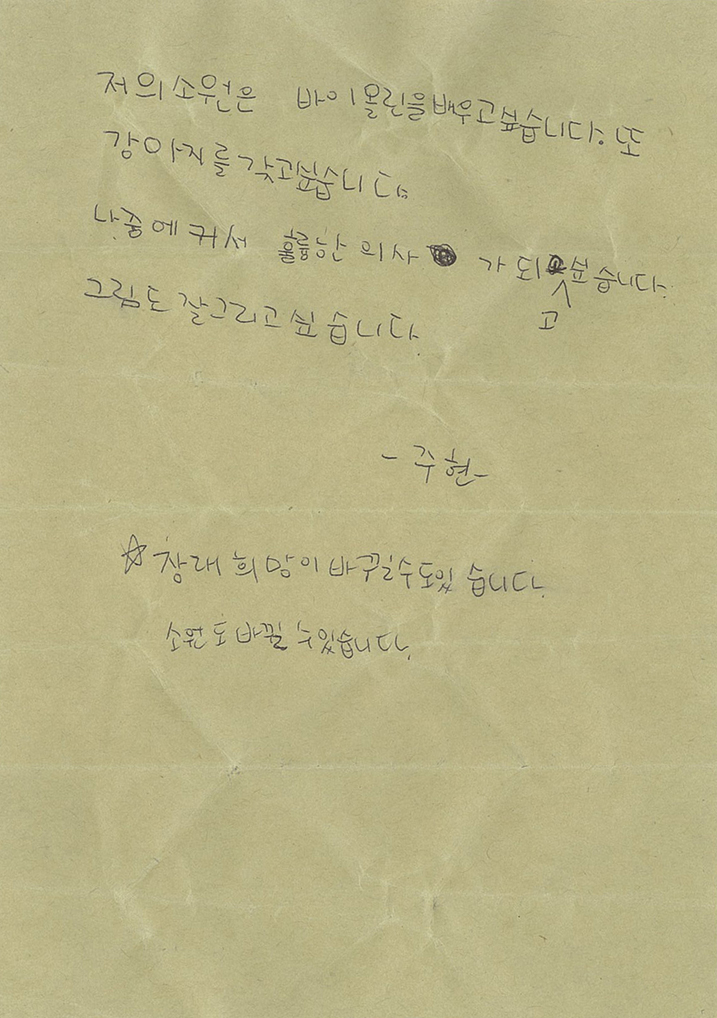 저의소원은 바이올린을배우고싶습니다. 또
강아지를 갖고싶습니다.
나중에 커서 훌륭한 의사 가 되고싶습니다.
그림도 잘그리고 싶습니다.
- 주현 -
☆ 장래 희망이 바꾸일수도있 습니다.
소원도 바뀔 수있습니다.